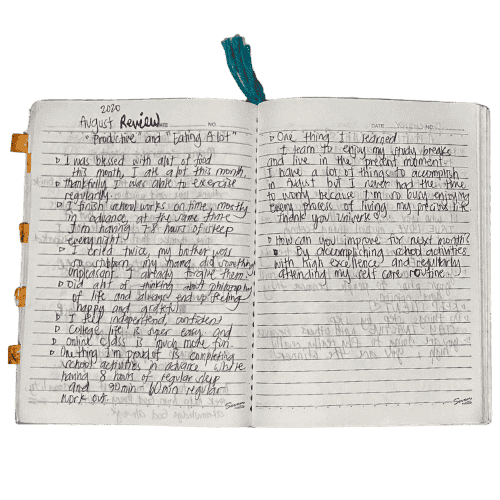 2020
August Review DATE NO.
"Productive" and "Eating A lot"
I was blessed with alot of food
this month, I ate alot this month.
thankfully I was able to exercise
regularly.
I finish school works on time, mostly
in advance, at the same time
I'm having 7-8 hours of sleep
every night.
I cried twice, my brother was
so stubborn, my mama did something
unpleasant. I already forgive them.
Did alot of thinking about philosophy
of life and always end up feeling
happy and grateful
I feel independent, confident
College life is super easy and
online class is much more fun.
One thing I'm proud of is completing
school activities in advance while
having 8 hours of regular sleep
and 30min - 60min regular
work out.
DATE NO.
One thing I learned
I learn to enjoy my study breaks
and live in the "present moment."
I have a lot of things to accomplish
in August but I never had the time
to worry because I'm so busy enjoying
every phases of living my precious life
Thank you universe
How can you improve for next month?
By accomplishing school activities
with high excellence and regularly
attending my self care routine.